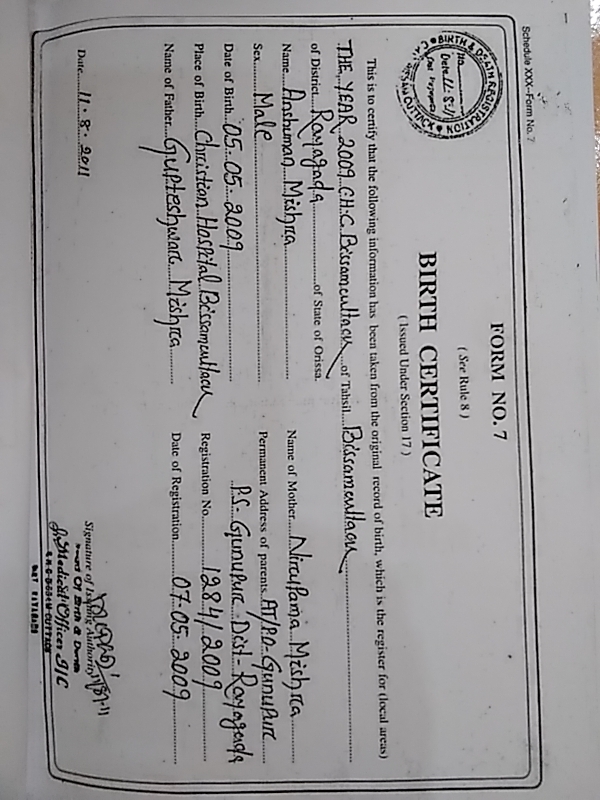 1
Schedule XXX–Form No. 7
FORM NO. 7
( See Rule 8 )
BIRTH CERTIFICATE
( Issued Under Section 17 )
BIRTH & DEATH REGISTRATION
CUTTACK
No.
Date 11-8-11
This is to certify that the following information has been taken from the original record of birth, which is the register for (local areas)
THE YEAR 2009 C.H.C. Bissamcuttack of Tahsil Bissamcuttack
of District Rayagada of State of Orissa.
Name Anshuman Mishra
Sex Male
Date of Birth 05.05.2009
Place of Birth Christian Hospital Bissamcuttack
Name of Father Gupteshwar Mishra
Name of Mother Nirupama Mishra
Permanent Address of parents AT/PO-Gunupur
P.S- Gunupur Dist- Rayagada
Registration No. 1284/2009
Date of Registration 07-05-2009
Date 11.8.2011
Signature of Issuing Authority
Birth & Death
Medical Officer I/C